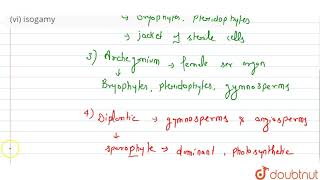 (vi) isogamy
↳ bryophytes, pteridophytes
→ jacket of sterile cells
3) Archegonium → female sex organ
↓
Bryophytes, pteridophytes, gymnosperms
4) Diplontic → gymnosperms & angiosperms
↓
sporophyte → dominant, photosynthetic
doubtnut